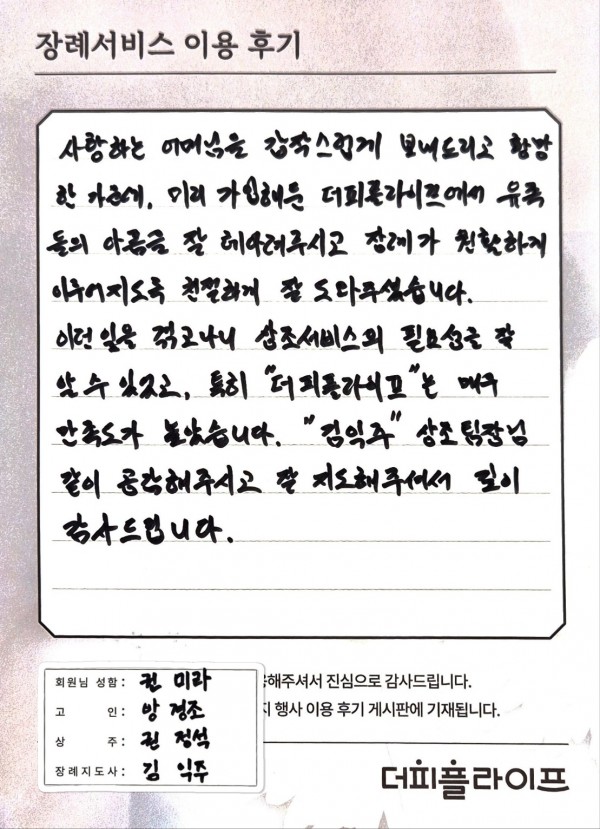 장례서비스 이용 후기
사랑하는 어머님을 갑작스럽게 보내드리고 황망
한 가운데, 미리 가입해둔 더피플라이프에서 유족
들의 아픔을 잘 헤아려주시고 장례가 원활하게
이루어지도록 친절하게 잘 도와주셨습니다.
이런 일을 겪고나니 상조서비스의 필요성을 잘
알 수 있었고, 특히 "더피플라이프"는 매우
만족도가 높았습니다. "김익주" 상조팀장님
같이 공감해주시고 잘 지도해주셔서 깊이
감사드립니다.
회원님 성함: 권 미라
해주셔서 진심으로 감사드립니다.
고 인: 양 경조
지 행사 이용 후기 게시판에 기재됩니다.
상 주: 권 정석
장례지도사: 김 익주
더피플라이프